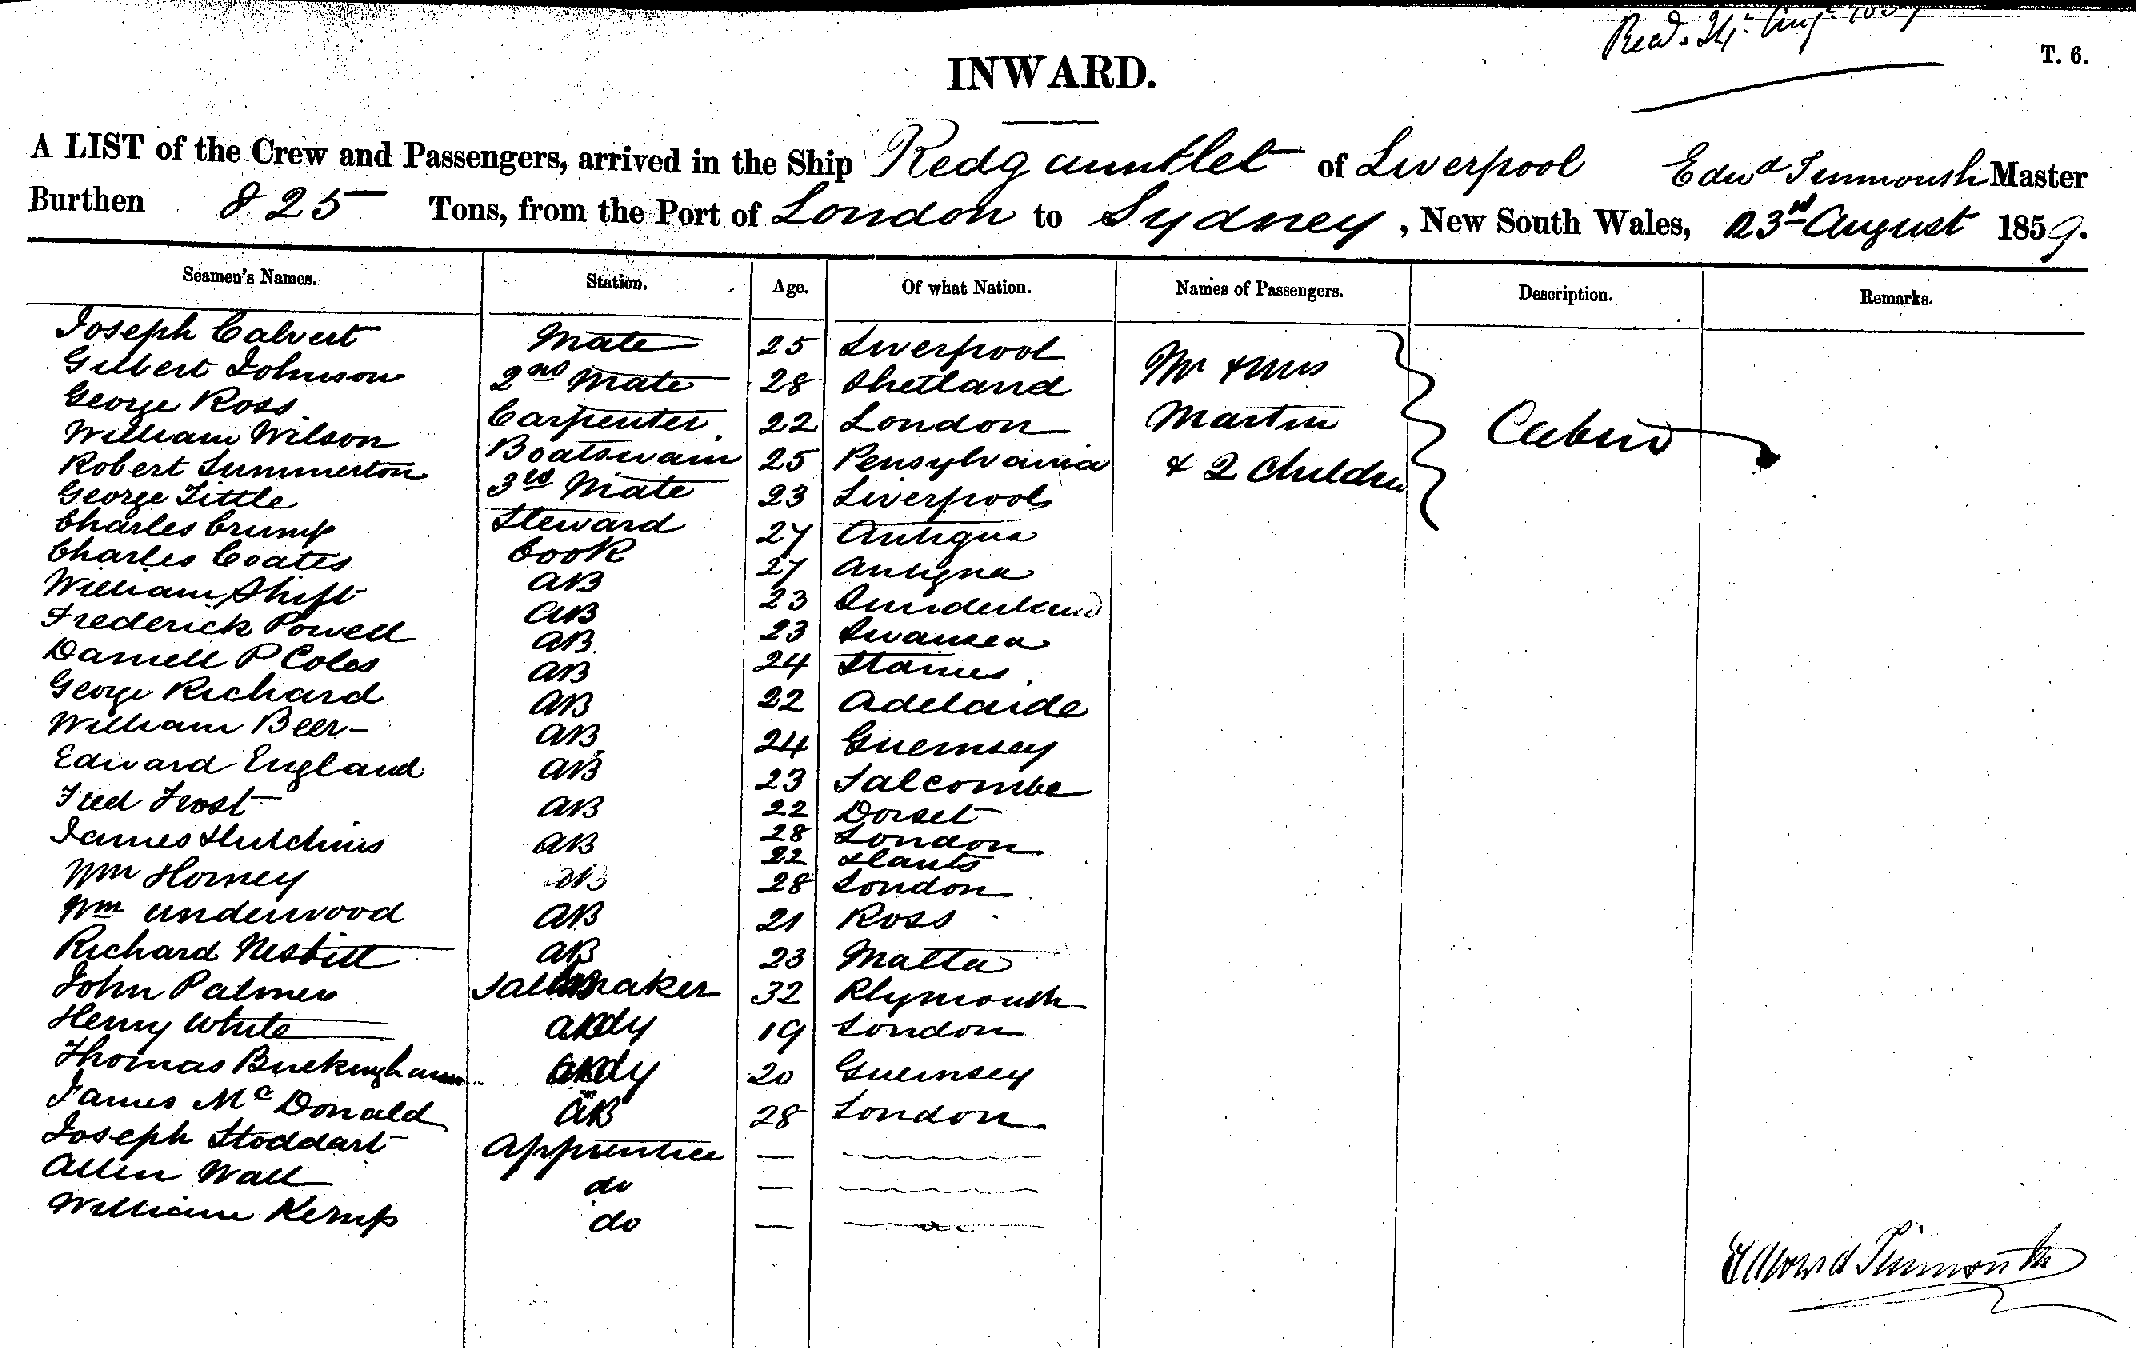 Recd. 24th Augt. 1859
T. 6.
INWARD.
A LIST of the Crew and Passengers, arrived in the Ship Redgauntlet of Liverpool Edwd Tinmouth Master
Burthen 825 Tons, from the Port of London to Sydney, New South Wales, 23rd August 1859.
Seamen's Names. Station. Age. Of what Nation. Names of Passengers. Description. Remarks.
Joseph Calvert Mate 25 Liverpool Mr & Mrs
Gilbert Johnson 2nd Mate 28 Shetland Martin
George Ross Carpenter 22 London & 2 Children Cabin
William Wilson Boatswain 25 Pensylvania
Robert Summerton 3rd Mate 23 Liverpool
George Little Steward 27 Antigua
Charles Crump Cook 27 Antigua
Charles Coates AB 23 Sunderland
William Shift AB 23 Swansea
Frederick Powell AB 24 Staines
Daniell P Coles AB 22 Adelaide
George Richard AB 24 Guernsey
William Beer AB 23 Salcombe
Edward England AB 22 Dorset
Fred Frost AB 28 London
James Hutchins AB 22 Hants
Wm Horney AB 28 London
Wm Underwood AB 21 Ross
Richard Nesbitt AB 23 Malta
John Palmer Sailmaker 32 Plymouth
Henry White 19 London
Thomas Buckingham 20 Guernsey
James McDonald AB 28 London
Joseph Stoddart Apprentice —
Allen Wall do —
William Kemp do —
Edward Tinmouth